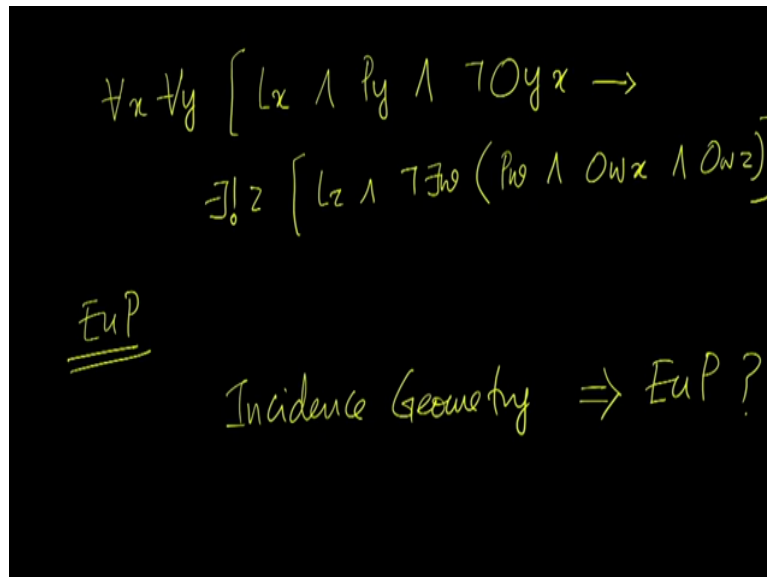 ∀x ∀y [Lx ∧ Py ∧ ¬Oyx →
∃!z [Lz ∧ ¬∃w (Pw ∧ Owx ∧ Owz)]
EuP
Incidence Geometry ⇒ EuP ?